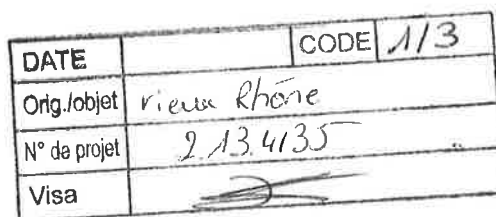 DATE CODE 1/3
Orig./objet vieux Rhône
N° de projet 2.13.4135
Visa